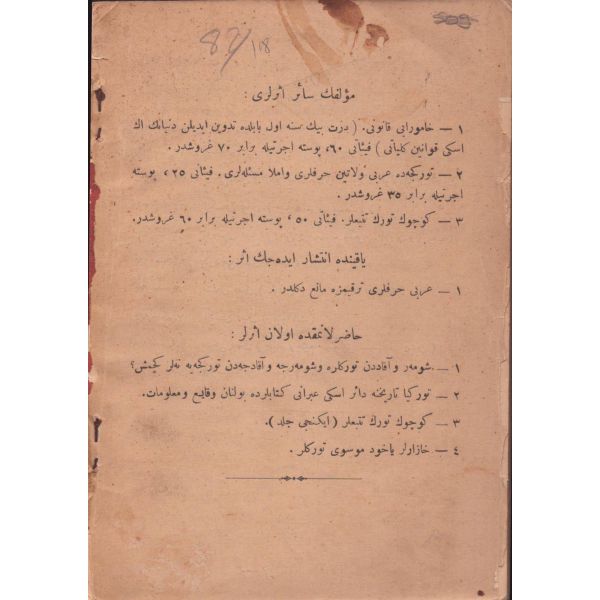 82/118
مؤلفك سائر اثرلری :
١ — خامورابی قانونی. ( درت بیك سنه اول بابلده تدوین ایدیلن دنیانك اك
اسكی قوانین كلیاتی ) فیئاتی ٦٠، پوسته اجرتیله برابر ٧٠ غروشدر .
٢ — توركجه‌ده عربی ولاتین حرفلری واملا مسئله‌لری. فیئاتی ٢٥، پوسته
اجرتیله برابر ٣٥ غروشدر .
٣ — كوچوك تورك تتبعلر. فیئاتی ٥٠، پوسته اجرتیله برابر ٦٠ غروشدر.
یاقینده انتشار ایده‌جك اثر :
١ — عربی حرفلری ترقیمزه مانع دكلدر .
حاضرلانمقده اولان اثرلر :
١ — شومه‌ر وآقاددن توركلره وشومه‌رجه وآقادجه‌دن توركجه‌یه نه‌لر كچمش؟
٢ — توركیا تاریخنه دائر اسكی عبرانی كتابلرده بولنان وقایع ومعلومات.
٣ — كوچوك تورك تتبعلر ( ایكنجی جلد ).
٤ — خازارلر یاخود موسوی توركلر .